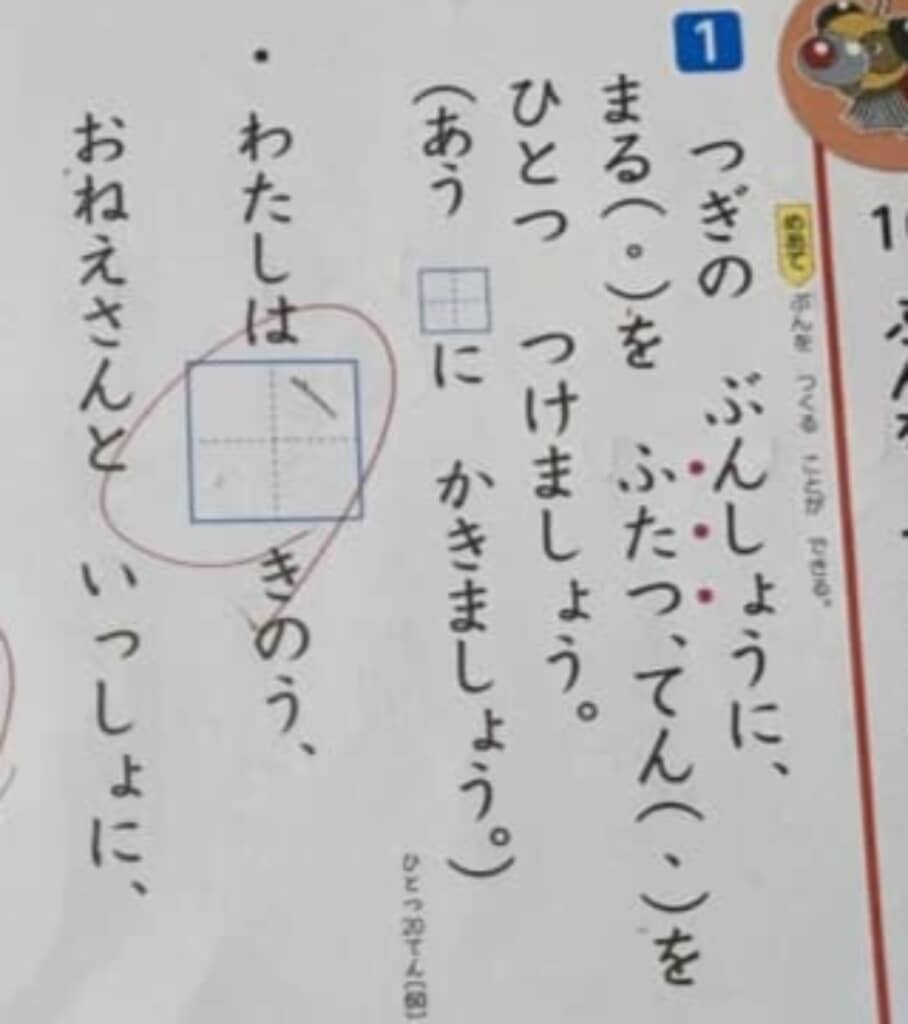 1
めあて ぶんを つくる ことが できる。
つぎの ぶんしょうに、
まる(。)を ふたつ、てん(、)を
ひとつ つけましょう。
(あう に かきましょう。)
ひとつ20てん(60)
・わたしは、きのう、
おねえさんと いっしょに、